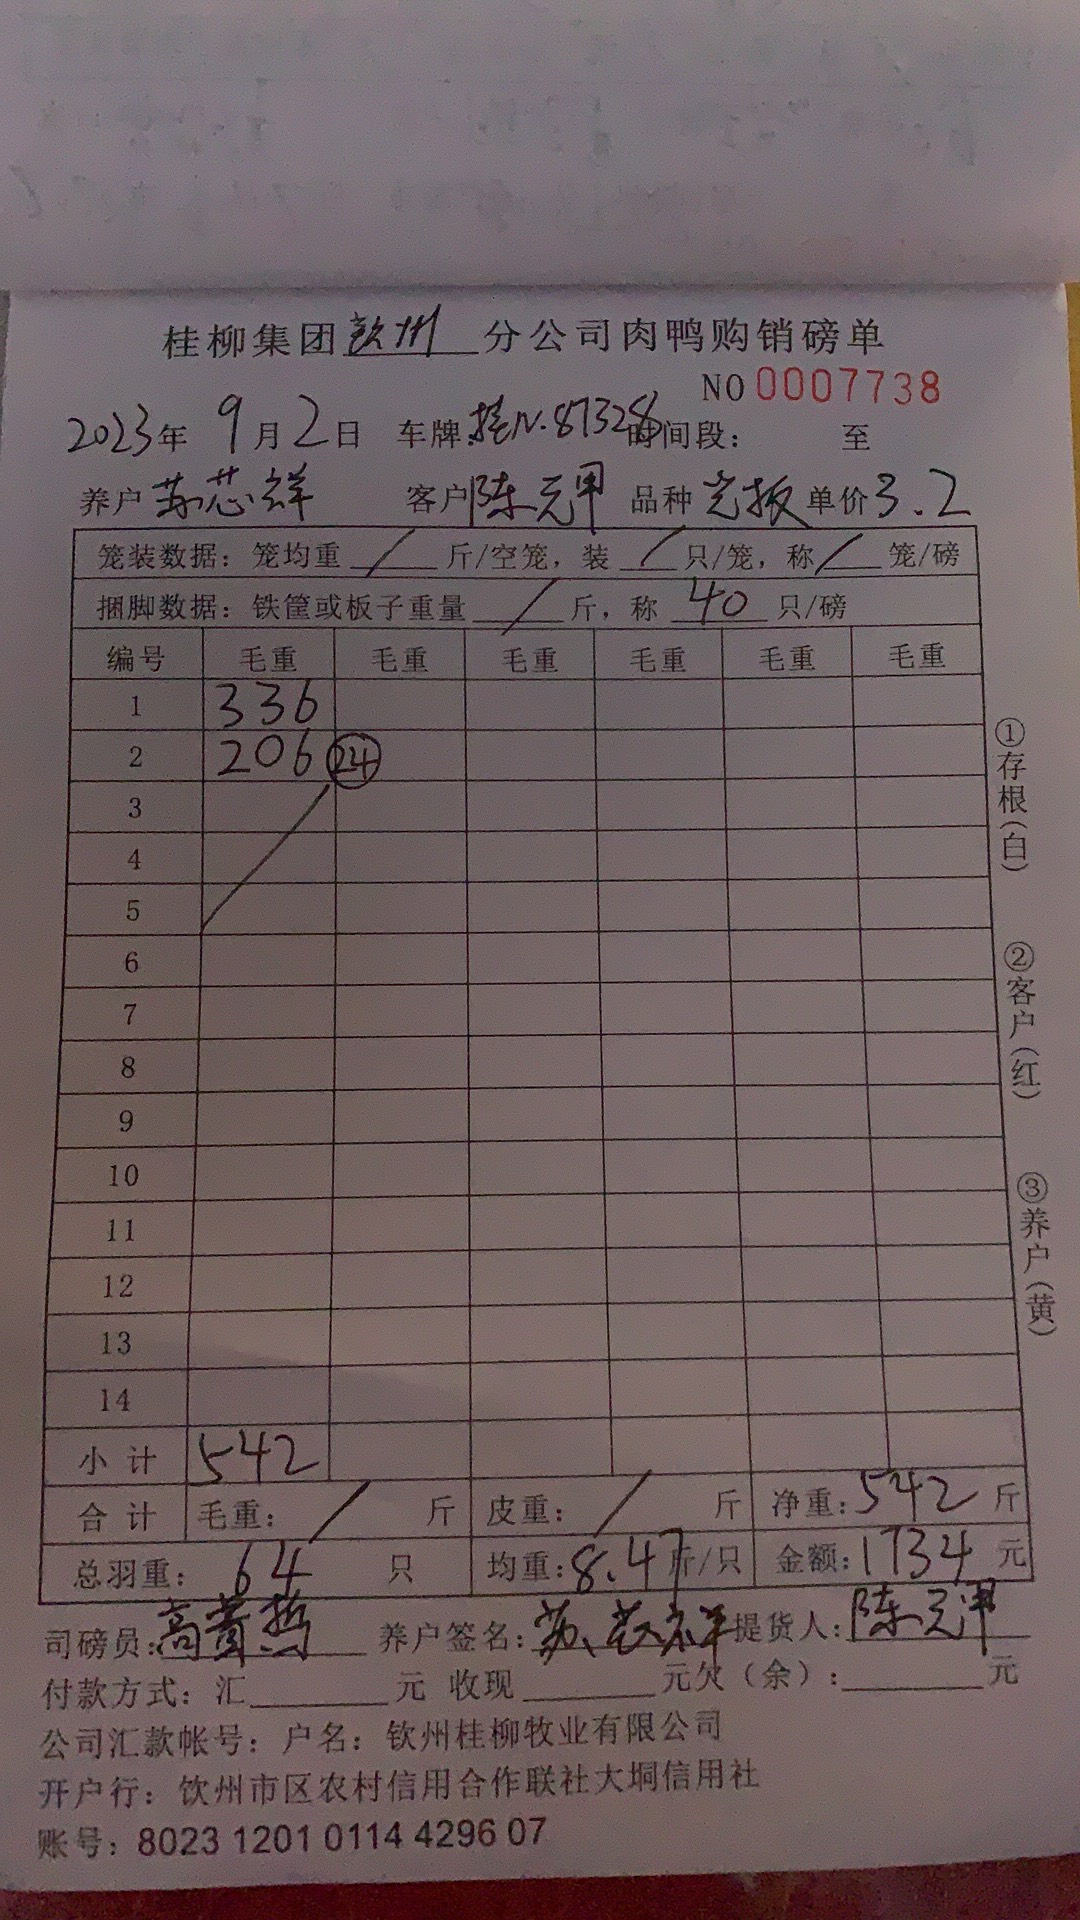 桂柳集团钦州分公司肉鸭购销磅单
NO 0007738
2023年 9月2日 车牌:桂N.87328 时间段: 至
养户 苏芯祥 客户 陈元甲 品种 光板 单价 3.2
笼装数据:笼均重 / 斤/空笼,装 / 只/笼,称 / 笼/磅
捆脚数据:铁筐或板子重量 / 斤,称 40 只/磅
编号 毛重 毛重 毛重 毛重 毛重 毛重
1 336
2 206 24
3
4
5
6
7
8
9
10
11
12
13
14
小计 542
合计 毛重: / 斤 皮重: / 斤 净重:542 斤
总羽重: 64 只 均重:8.47 斤/只 金额:1734 元
司磅员: 养户签名:苏芯祥 提货人:陈元甲
付款方式:汇 元 收现 元欠(余): 元
公司汇款帐号:户名:钦州桂柳牧业有限公司
开户行:钦州市区农村信用合作联社大垌信用社
账号:8023 1201 0114 4296 07
①存根(白)
②客户(红)
③养户(黄)